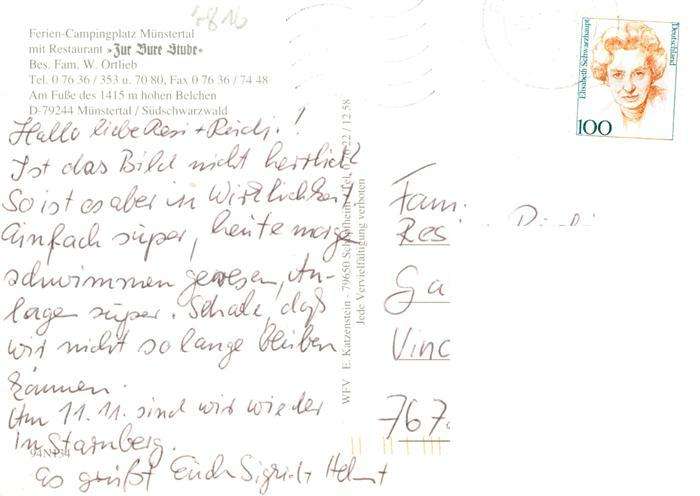 Ferien-Campingplatz Münstertal
mit Restaurant »Zur Bure Stube«
Bes. Fam. W. Ortlieb
Tel. 0 76 36 / 353 u. 70 80, Fax 0 76 36 / 74 48
Am Fuße des 1415 m hohen Belchen
D-79244 Münstertal / Südschwarzwald
Hallo liebe Resi +
Ist das Bild nicht herrlich?
So ist es aber in Wirklichkeit
Einfach super, heute morgen
schwimmen gewesen, An-
lagen super. Schade, daß
wir nicht so lange bleiben
können.
Am 11.11. sind wir wieder
in Starnberg.
94N154
Es grüßt Euch Sigrid + Helmut
WFV E. Katzenstein - 79650 Schopfheim - Tel. 22 / 12 58
Jede Vervielfältigung verboten
Elisabeth Schwarzhaupt
Deutschland
100
Fam.
Res
Ga
Vinc
767